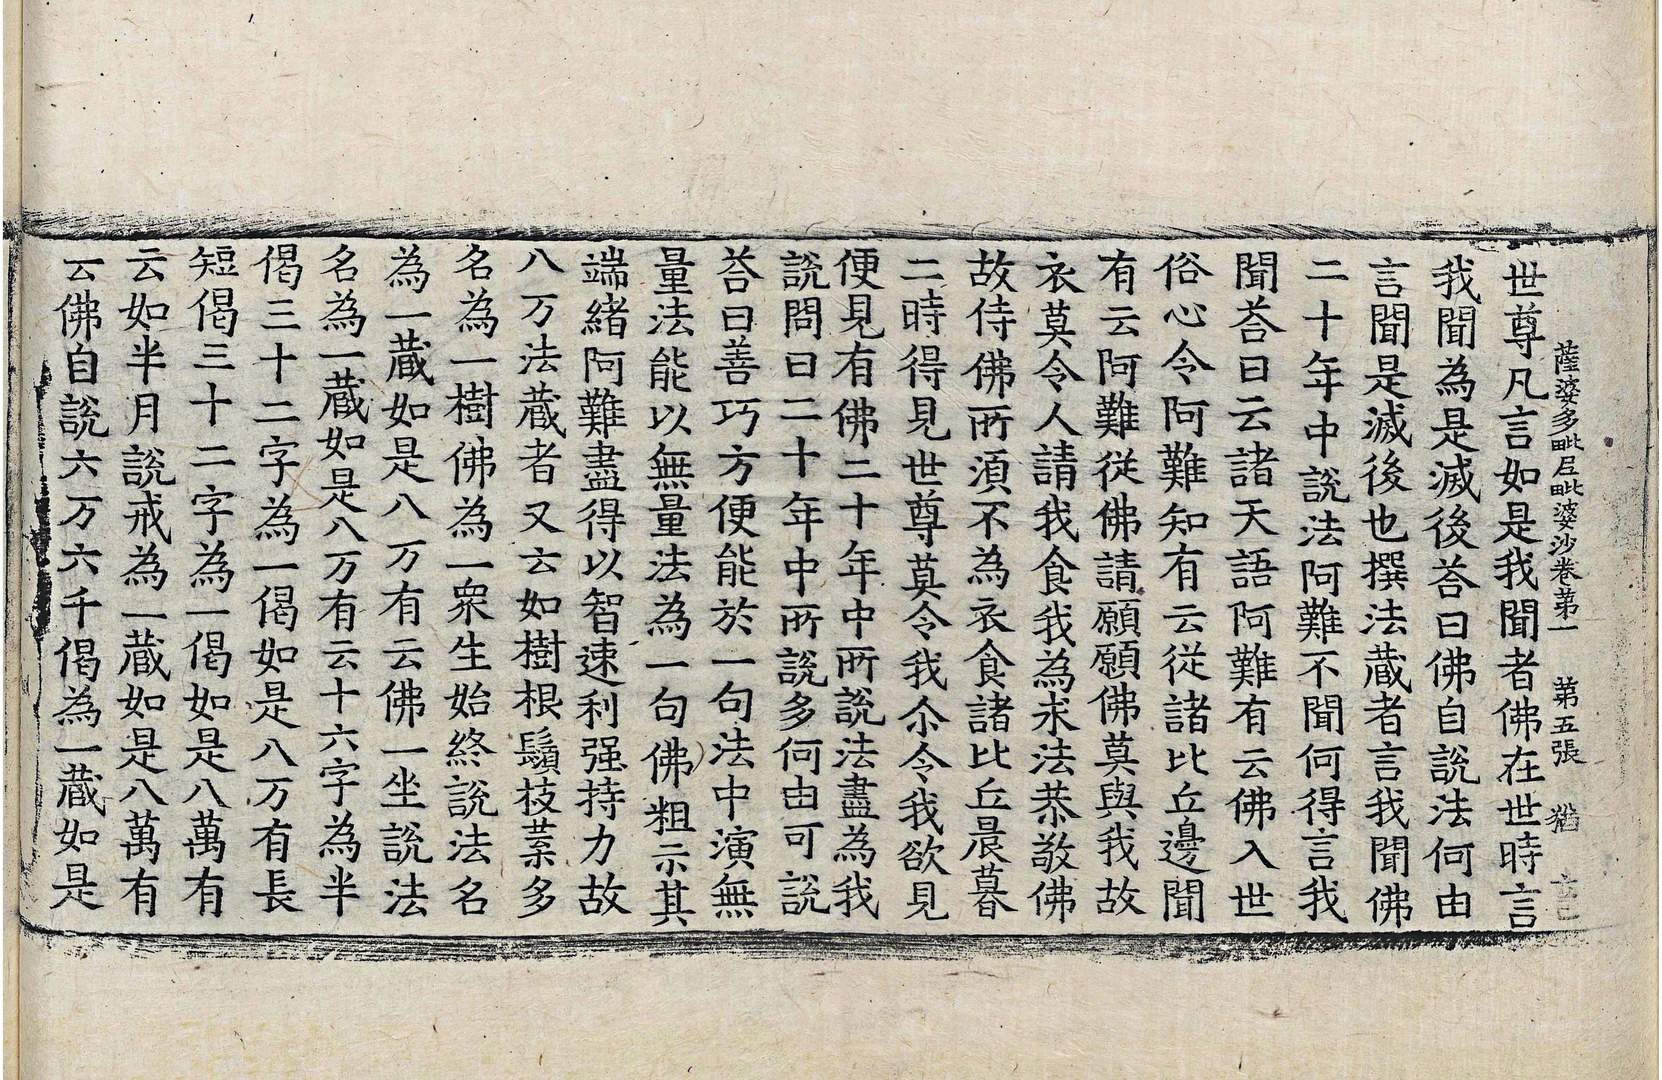 薩婆多毗尼毗婆沙卷第一　第五張　猶
世尊凡言如是我聞者佛在世時言
我聞為是滅後荅曰佛自說法何由
言聞是滅後也撰法藏者言我聞佛
二十年中說法阿難不聞何得言我
聞荅曰云諸天語阿難有云佛入世
俗心令阿難知有云從諸比丘邊聞
有云阿難從佛請願願佛莫與我故
衣莫令人請我食我為求法恭敬佛
故侍佛所湏不為衣食諸比丘晨暮
二時得見世尊莫令我尒令我欲見
便見有佛二十年中所說法盡為我
說問曰二十年中所說多何由可說
荅曰善巧方便能於一句法中演無
量法能以無量法為一句佛粗示其
端緒阿難盡得以智速利强持力故
八万法藏者又云如樹根鬚枝葉多
名為一樹佛為一衆生始終說法名
為一藏如是八万有云佛一坐說法
名為一藏如是八万有云十六字為半
偈三十二字為一偈如是八万有長
短偈三十二字為一偈如是八萬有
云如半月說戒為一藏如是八萬有
云佛自說六万六千偈為一藏如是